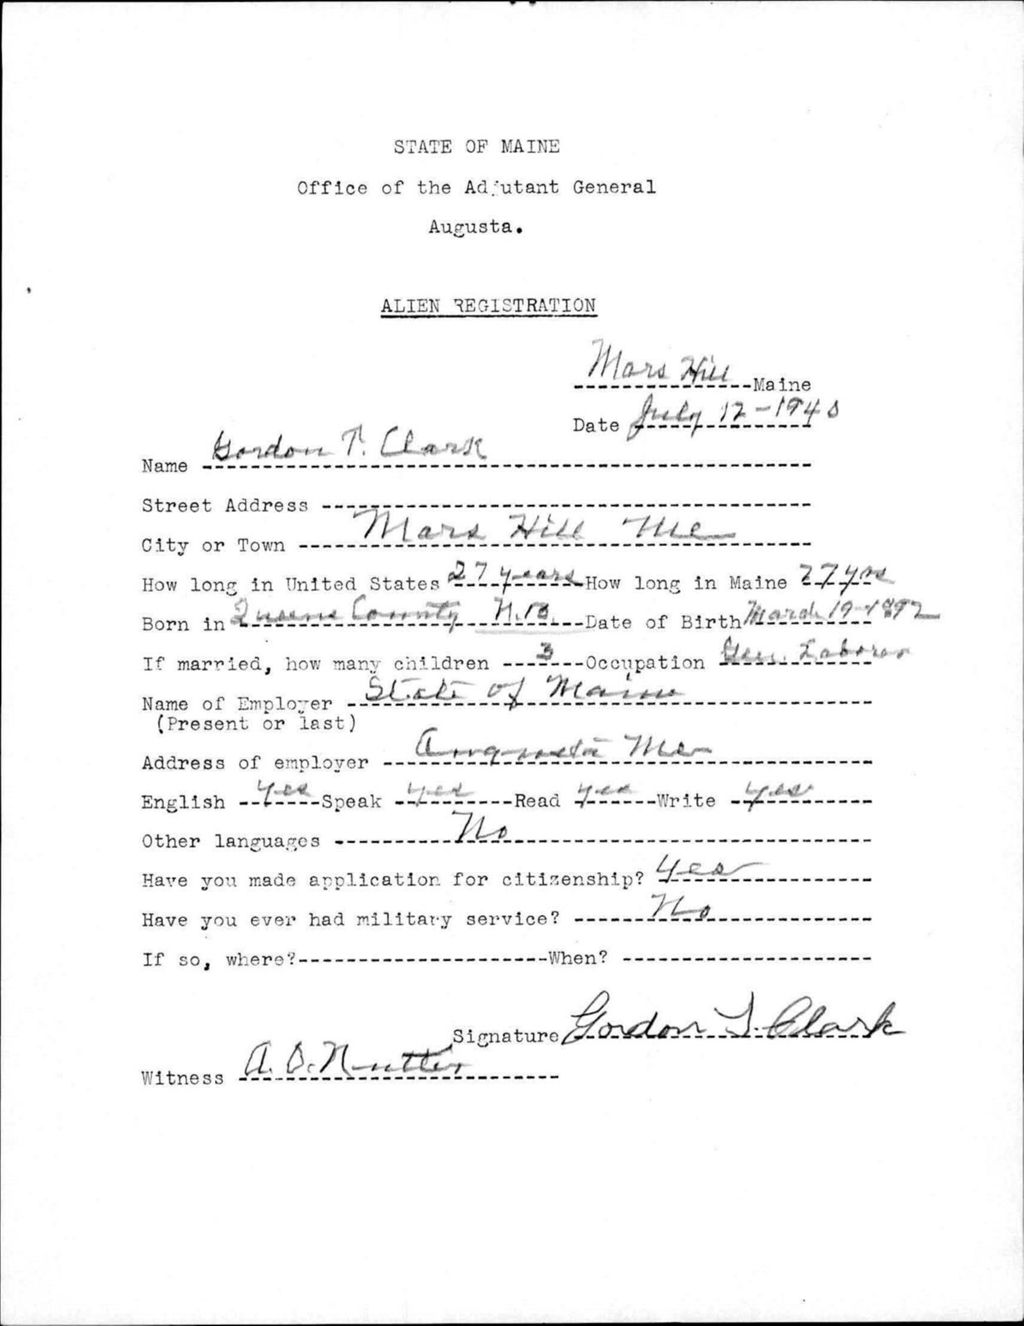 STATE OF MAINE
Office of the Adjutant General
Augusta.
ALIEN REGISTRATION
Mars Hill Maine
Date July 12-1940
Name Gordon T. Clark
Street Address
City or Town Mars Hill Me
How long in United States 27 years How long in Maine 27 yrs
Born in Queens County N.B. Date of Birth March 19-1892
If married, how many children 3 Occupation Gen. Laborer
Name of Employer State of Maine
(Present or last)
Address of employer Augusta Me
English Yes Speak yes Read yes Write yes
Other languages No
Have you made application for citizenship? Yes
Have you ever had military service? No
If so, where? When?
Signature Gordon T. Clark
Witness A. D. Nutter